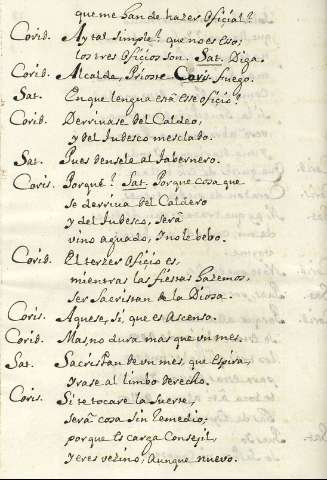 que me han de hazer Oficial?
Corid. Ay tal simple? que no es eso;
los tres Oficios son. Sat. Diga.
Corid. Alcalde, Prioste Coris. fuego.
Sat. En que lengua està ese oficio?
Corid. Derrivase del Caldeo,
y del Tudesco mesclado.
Sat. Pues densele al tabernero.
Coris. Porquè? Sat. Porque cosa que
se derriva del Caldero
y del Tudesco, serà
vino aguado, y no le bebo.
Corid. El terzer Oficio es,
mientras las fiestas hazemos,
ser Sacristan de la Diosa.
Coris. Aquese, si, que es Ascenso.
Corid. Mas, no dura mas que vn mes.
Sat. Sacristan de vn mes, que espira,
yrase al limbo derecho.
Coris. Si te tocare la suerte,
serà cosa sin remedio;
porque es carga Consejil,
y eres vezino, aunque nuevo.